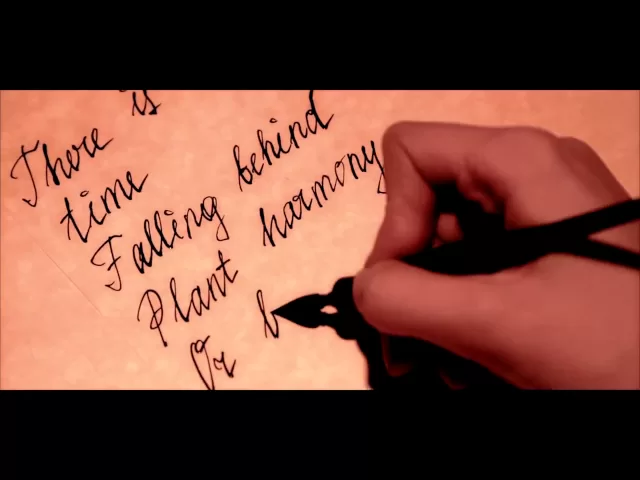 There is
time
Falling behind
Plant harmony
Or b